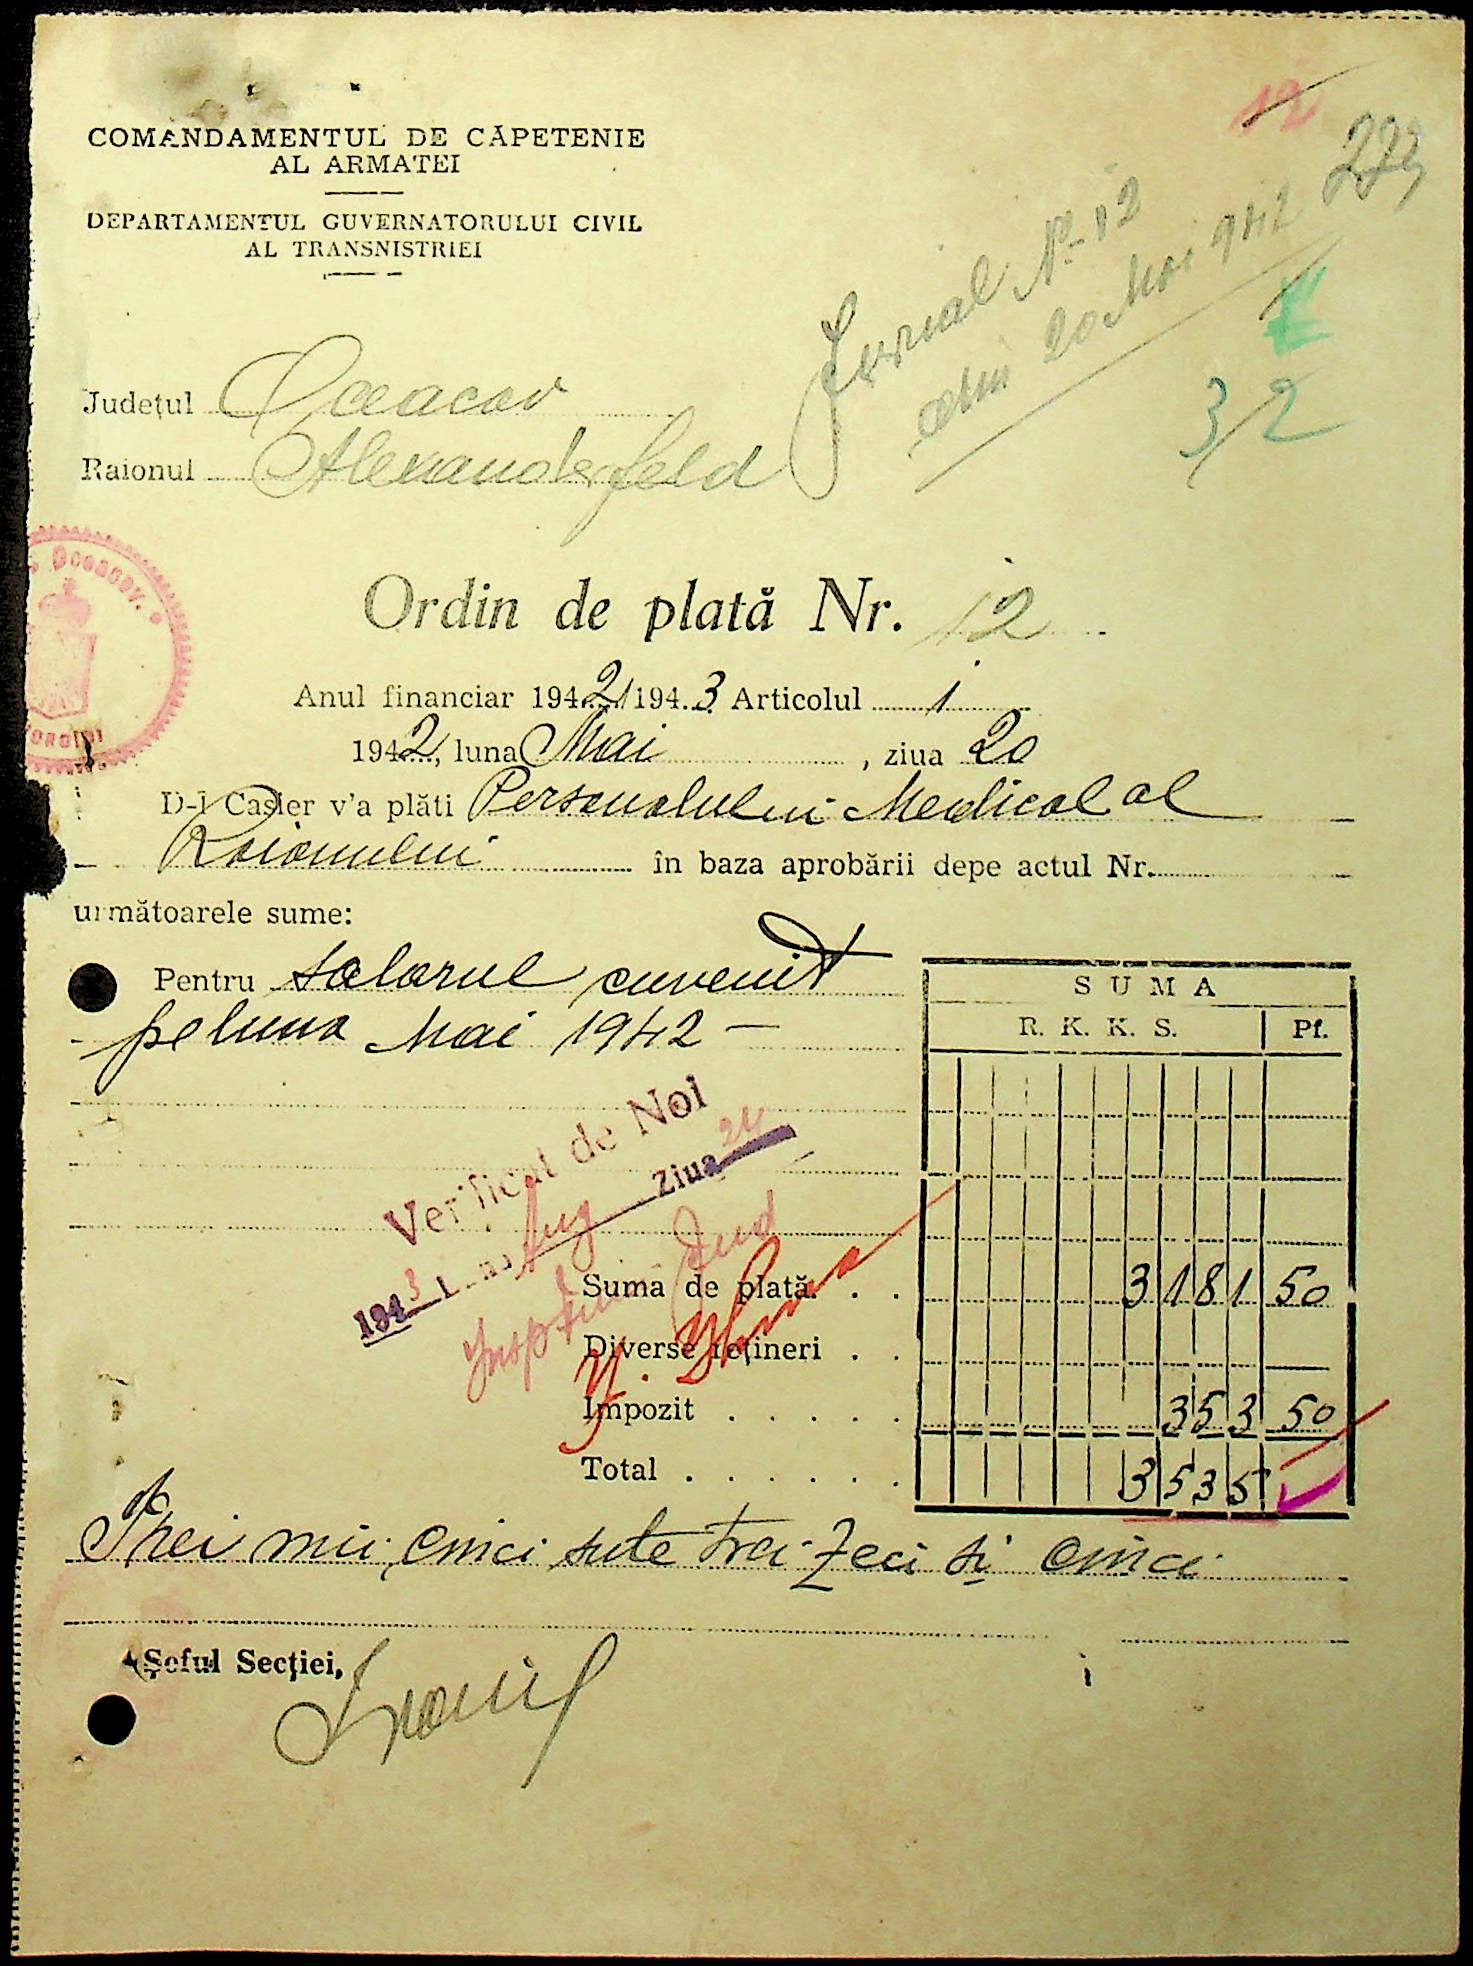 12
COMANDAMENTUL DE CĂPETENIE
AL ARMATEI
DEPARTAMENTUL GUVERNATORULUI CIVIL
AL TRANSNISTRIEI
Jurnal No 12
din 20 Mai 942
32
Județul Oceacov
Raionul Alexanderfeld
Oceacov
Ordin de plată Nr. 12
Anul financiar 1942/1943 Articolul 1
1942, luna Mai, ziua 20
D-l Casier v'a plăti Personalului Medical al
Raionului în baza aprobării depe actul Nr.
următoarele sume:
Pentru salarul cuvenit
pe luna Mai 1942 —
SUMA
R. K. K. S. Pf.
Verificat de Noi
1943 luna Aug Ziua 24
Suma de plată . . 3181 50
Diverse rețineri . . —
Impozit . . . . . 353 50
Total . . . . . . 3535
Trei mii cinci sute trei zeci si cinci
Șeful Secției,